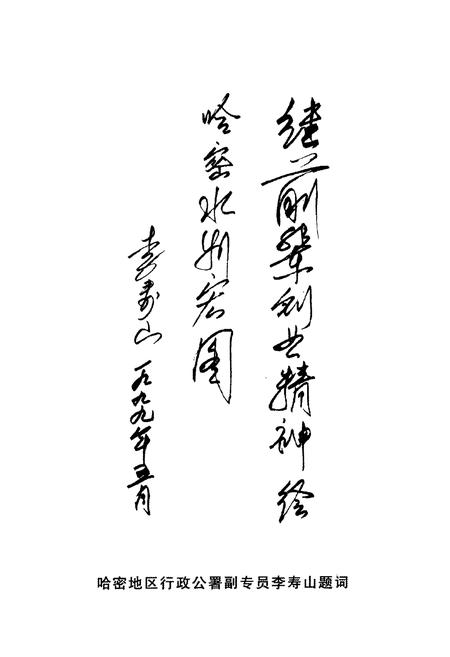 继前辈创业精神 绘
哈密水利宏图
李寿山 一九九九年五月
哈密地区行政公署副专员李寿山题词